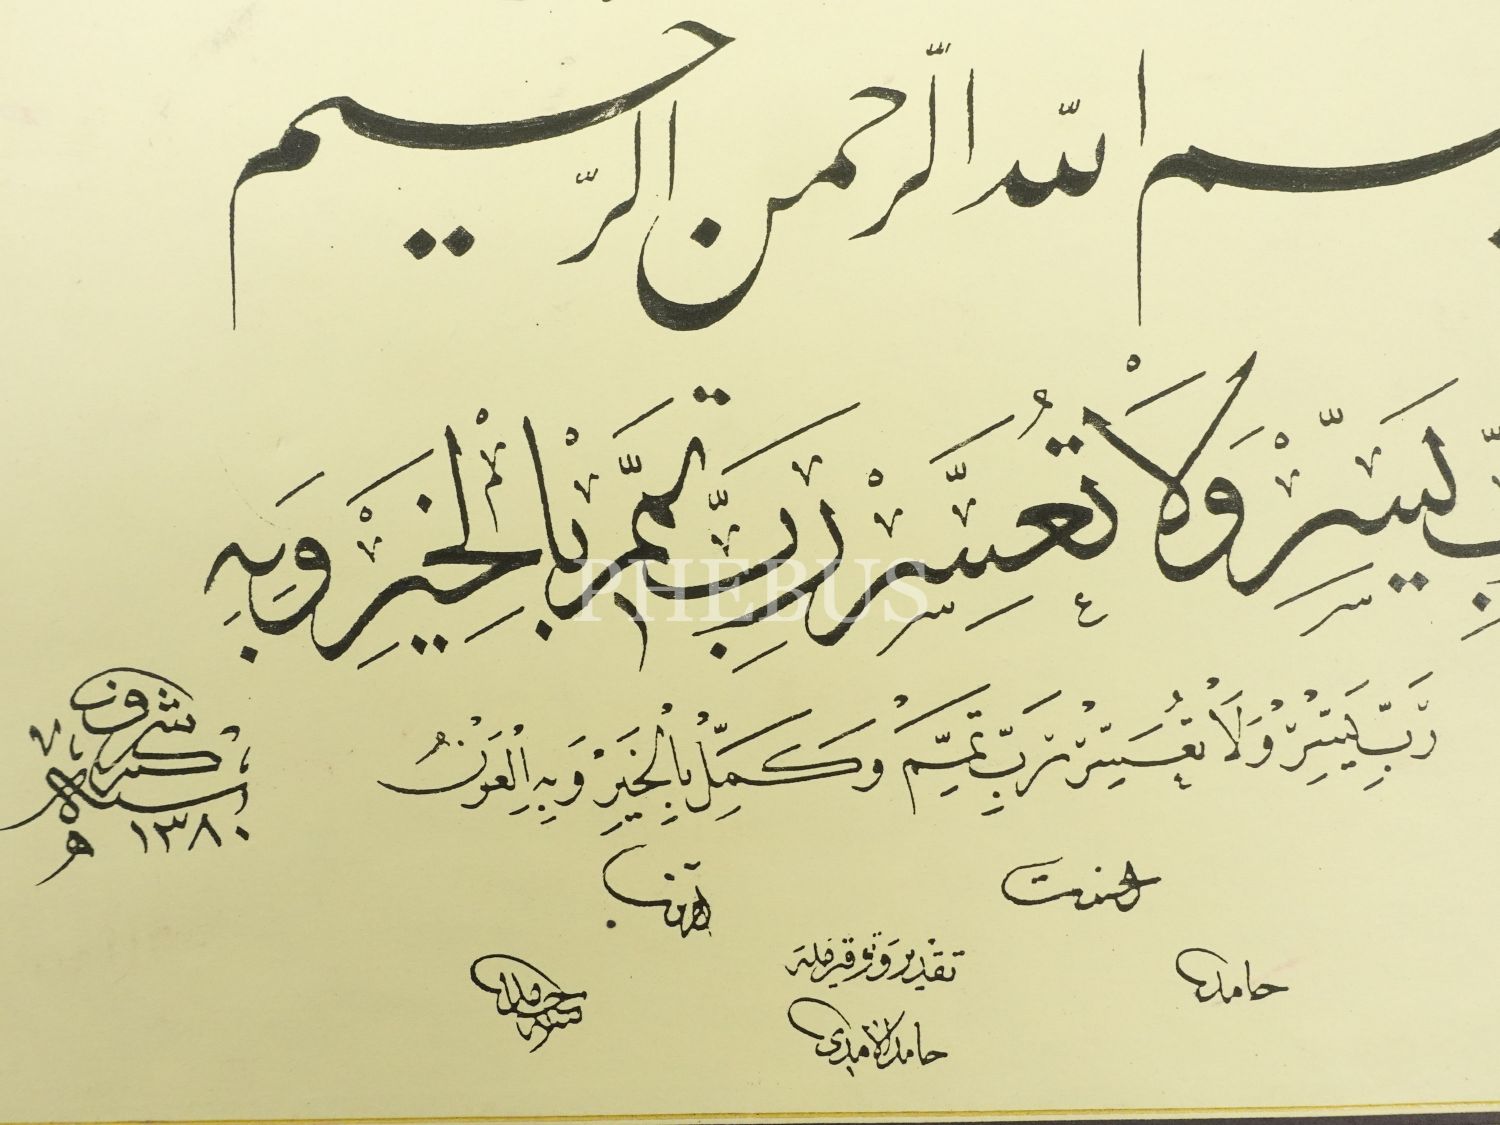 بسم الله الرحمن الرحيم
رَبِّ يَسِّرْ وَلَا تُعَسِّرْ رَبِّ تَمِّمْ بِالْخَيْرِ وَبِهِ
رَبِّ يَسِّرْ وَلَا تُعَسِّرْ رَبِّ تَمِّمْ وَكَمِّلْ بِالْخَيْرِ وَبِهِ الْعَوْنُ
١٣٨٠
حامد
تقدير وتوقير مله
حامد الآمدي
PHEBUS